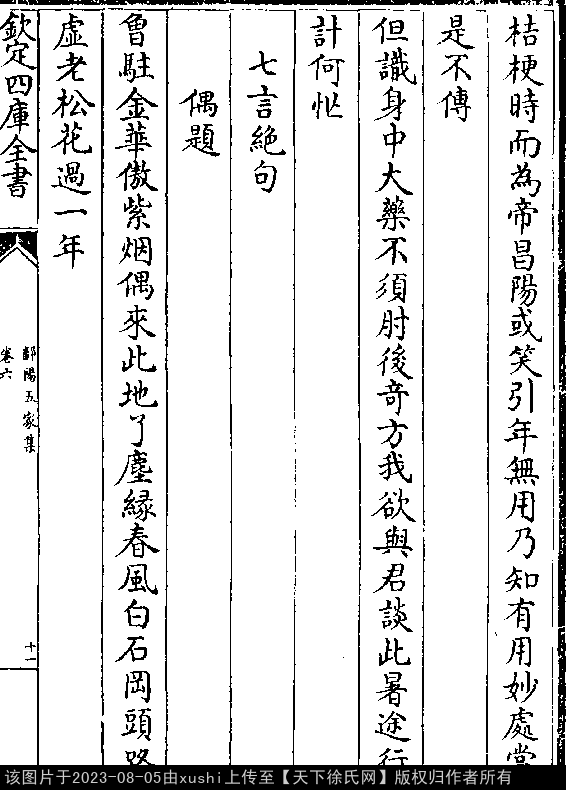 桔梗時而為帝昌陽或笑引年無用乃知有用妙處常
是不傳
但識身中大藥不須肘後奇方我欲與君談此暑途行
計何忙
七言絶句
偶題
曾駐金華傲紫烟偶來此地了塵緣春風白石岡頭路
虛老松花過一年
欽定四庫全書
鄱陽五家集
卷六
十一
该图片于2023-08-05由xushi上传至【天下徐氏网】版权归作者所有